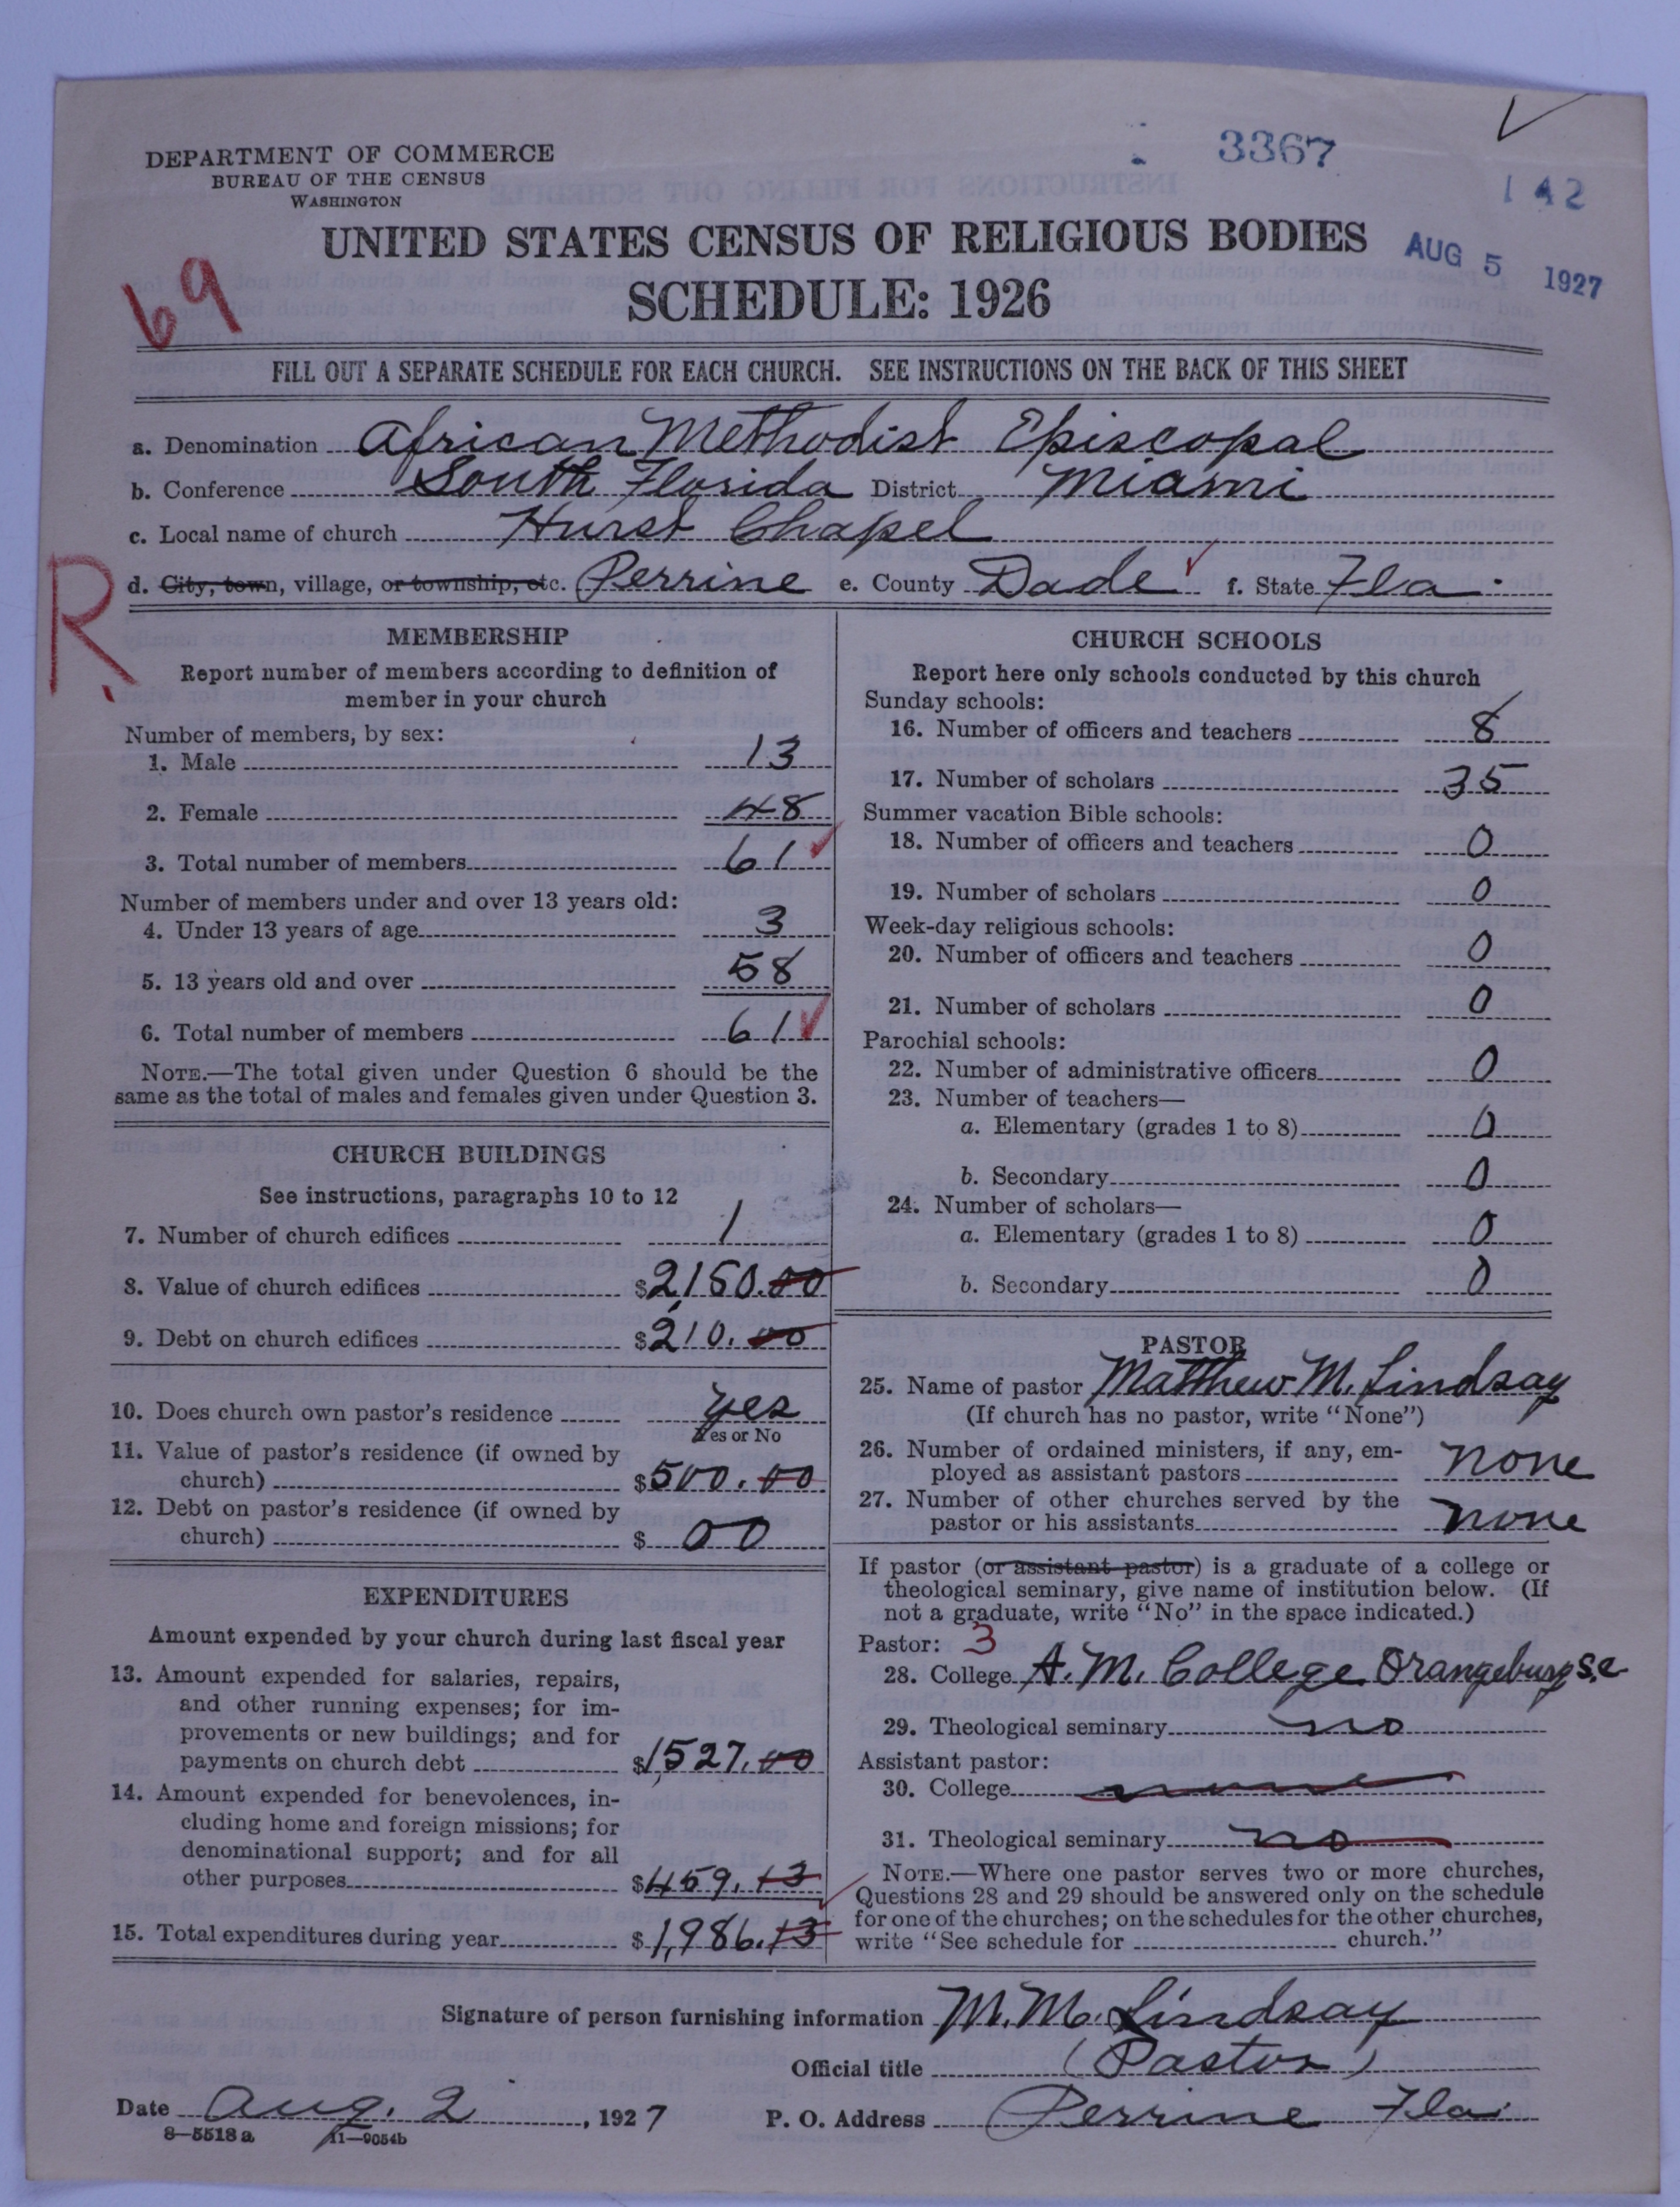 DEPARTMENT OF COMMERCE
BUREAU OF THE CENSUS
WASHINGTON
3367
142
UNITED STATES CENSUS OF RELIGIOUS BODIES
AUG 5 1927
69
SCHEDULE: 1926
FILL OUT A SEPARATE SCHEDULE FOR EACH CHURCH. SEE INSTRUCTIONS ON THE BACK OF THIS SHEET
a. Denomination African Methodist Episcopal
b. Conference South Florida District Miami
c. Local name of church Hurst Chapel
d. City, town, village, or township, etc. Perrine e. County Dade f. State Fla.
R
MEMBERSHIP
Report number of members according to definition of
member in your church
Number of members, by sex:
1. Male 13
2. Female 48
3. Total number of members 61
Number of members under and over 13 years old:
4. Under 13 years of age 3
5. 13 years old and over 58
6. Total number of members 61
NOTE.—The total given under Question 6 should be the
same as the total of males and females given under Question 3.
CHURCH BUILDINGS
See instructions, paragraphs 10 to 12
7. Number of church edifices 1
8. Value of church edifices $2,150.00
9. Debt on church edifices $210.00
10. Does church own pastor's residence yes
Yes or No
11. Value of pastor's residence (if owned by
church) $500.00
12. Debt on pastor's residence (if owned by
church) $ 00
EXPENDITURES
Amount expended by your church during last fiscal year
13. Amount expended for salaries, repairs,
and other running expenses; for im-
provements or new buildings; and for
payments on church debt $1,527.00
14. Amount expended for benevolences, in-
cluding home and foreign missions; for
denominational support; and for all
other purposes $459.13
15. Total expenditures during year $1,986.13
CHURCH SCHOOLS
Report here only schools conducted by this church
Sunday schools:
16. Number of officers and teachers 8
17. Number of scholars 35
Summer vacation Bible schools:
18. Number of officers and teachers 0
19. Number of scholars 0
Week-day religious schools:
20. Number of officers and teachers 0
21. Number of scholars 0
Parochial schools:
22. Number of administrative officers 0
23. Number of teachers—
a. Elementary (grades 1 to 8) 0
b. Secondary 0
24. Number of scholars—
a. Elementary (grades 1 to 8) 0
b. Secondary 0
PASTOR
25. Name of pastor Matthew M. Lindsay
(If church has no pastor, write "None")
26. Number of ordained ministers, if any, em-
ployed as assistant pastors none
27. Number of other churches served by the
pastor or his assistants none
If pastor (or assistant pastor) is a graduate of a college or
theological seminary, give name of institution below. (If
not a graduate, write "No" in the space indicated.)
Pastor: 3
28. College A. M. College Orangeburg S.C.
29. Theological seminary no
Assistant pastor:
30. College none
31. Theological seminary no
NOTE.—Where one pastor serves two or more churches,
Questions 28 and 29 should be answered only on the schedule
for one of the churches; on the schedules for the other churches,
write "See schedule for church."
Signature of person furnishing information M. M. Lindsay
Official title (Pastor)
Date Aug. 2, 1927 P. O. Address Perrine Fla.
8—5518a 11—9054b